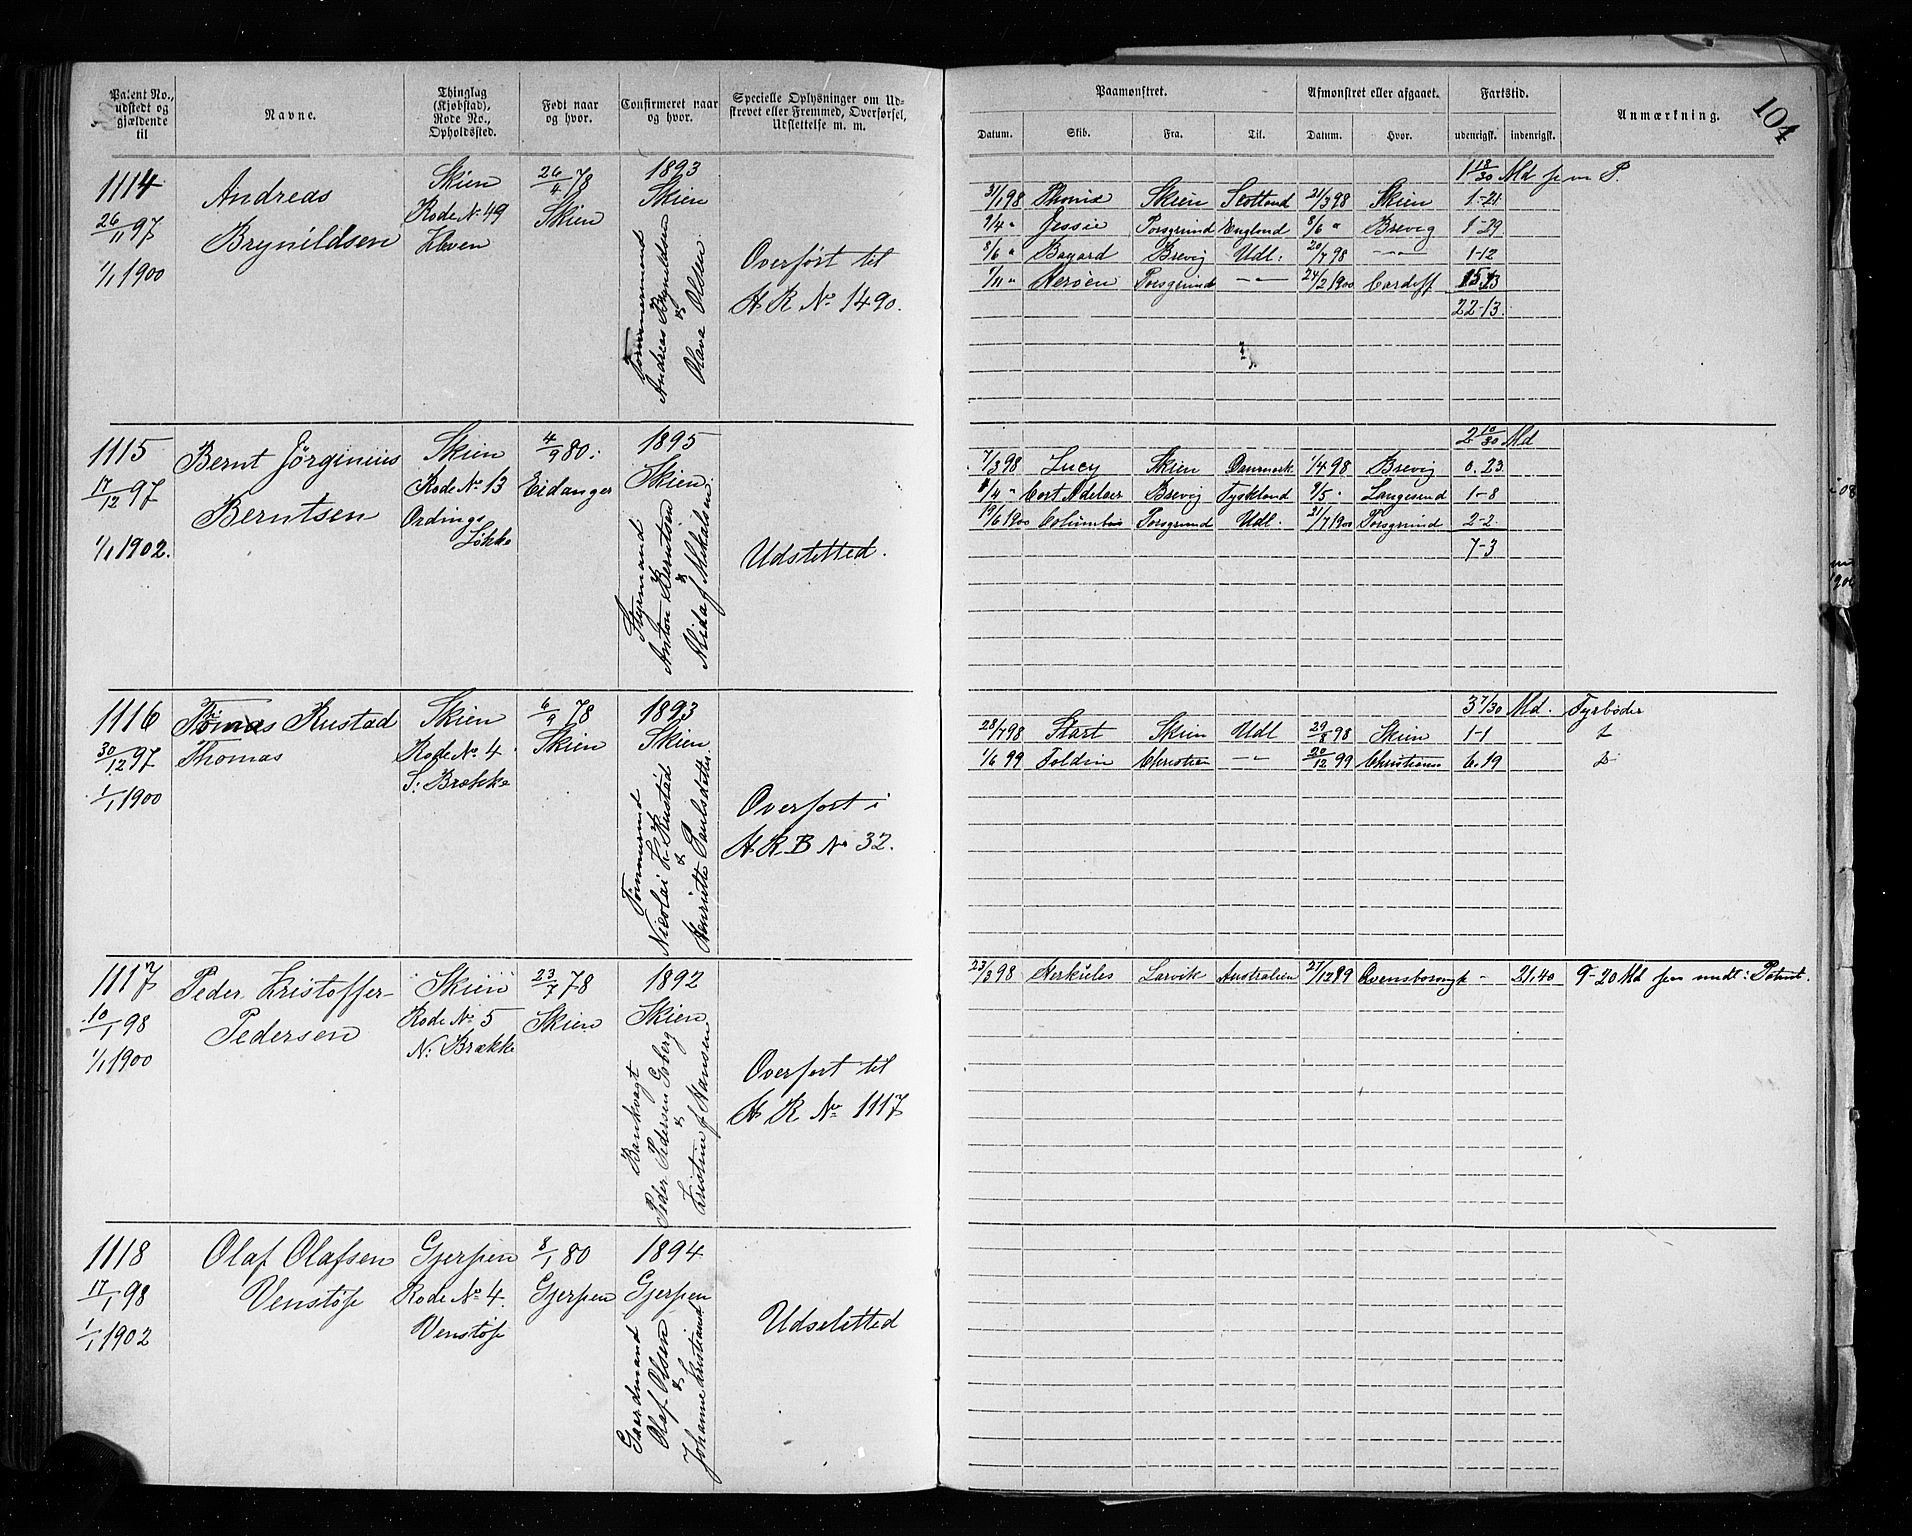 Patent No., udstedt og gjældende til
Navne.
Thinglag (Kjøbstad), Rode No., Opholdssted.
Født naar og hvor.
Confirmeret naar og hvor.
Specielle Oplysninger om Udskrevet eller Fremmed, Overførsel, Udslettelse m. m.
Paamønstret.
Datum. Skib. Fra. Til.
Afmønstret eller afgaaet.
Datum. Hvor.
Fartstid.
udenrigsk. indenrigsk.
Anmærkning.
104
1114
26/11 97
1/1 1900
Andreas
Brynildsen
Skien
Rode No 49
Kleven
26/4 78
Skien
1893
Skien
Tømmermand
Andreas Brynildsen
&
Olava Olsen
Overført til
H R No 1490.
1 18/30 Md P.
31/1 98 Phønix Skien Scotland 21/3 98 Skien 1-21
9/4 " Jessie Porsgrund England 8/6 " Brevig 1-29
8/6 " Bayard Brevig Udl: 20/7 98 -"- 1-12
7/11 " Herøen Porsgrund -"- 24/2 1900 Cardiff 15.13
22-13
1115
17/12 97
1/1 1902.
Bernt Jørginius
Berntsen
Skien
Rode No 13
Ordings
Løkke
4/9 80.
Eidanger
1895
Skien
Styrmand
Anton Berntsen
&
Alida f Mikalsen
Udsletted.
2 10/30 Md
7/3 98 Lucy Skien Danmark 1/4 98 Brevig 0.23
/4 " Cort Adelaer Brevig Tyskland 9/5 " Langesund 1-8
19/6 1900 Columbus Porsgrund Udl. 21/7 1900 Porsgrund 2-2
7-3
1116
30/12 97
1/1 1900
Tomas Rustad
Thomas
Skien
Rode No 4
S. Brække
6/9 78
Skien
1893
Skien
Tømmermd
Nicolai K. Rustad
&
Henriette Paulsdatter
Overført i
H R B No 32.
3 7/30 Md. Fyrbøder
28/7 98 Start Skien Udl 29/8 98 Skien 1-1
1/6 99 Foldin Christian -"- 20/12 99 Christiania 6.19
1117
10/1 98
1/1 1900
Peder Kristoffer
Pedersen
Skien
Rode No 5
N: Brække
23/7 78
Skien
1892
Skien
Bankvagt
Peder Pedersen Goberg
&
Kristine f Hansen
Overført til
H R No 1117
23/3 98 Herkules Larvik Australien 27/12 89 - 21.40 9-20 Md Patent.
1118
17/1 98
1/1 1902
Olaf Olafsen
Venstøp
Gjerpen
Rode No 4.
Venstøp
8/1 80
Gjerpen
1894
Gjerpen
Gaardmand
Olaf Olsen
&
Johanne Kristiansd
Udseletted